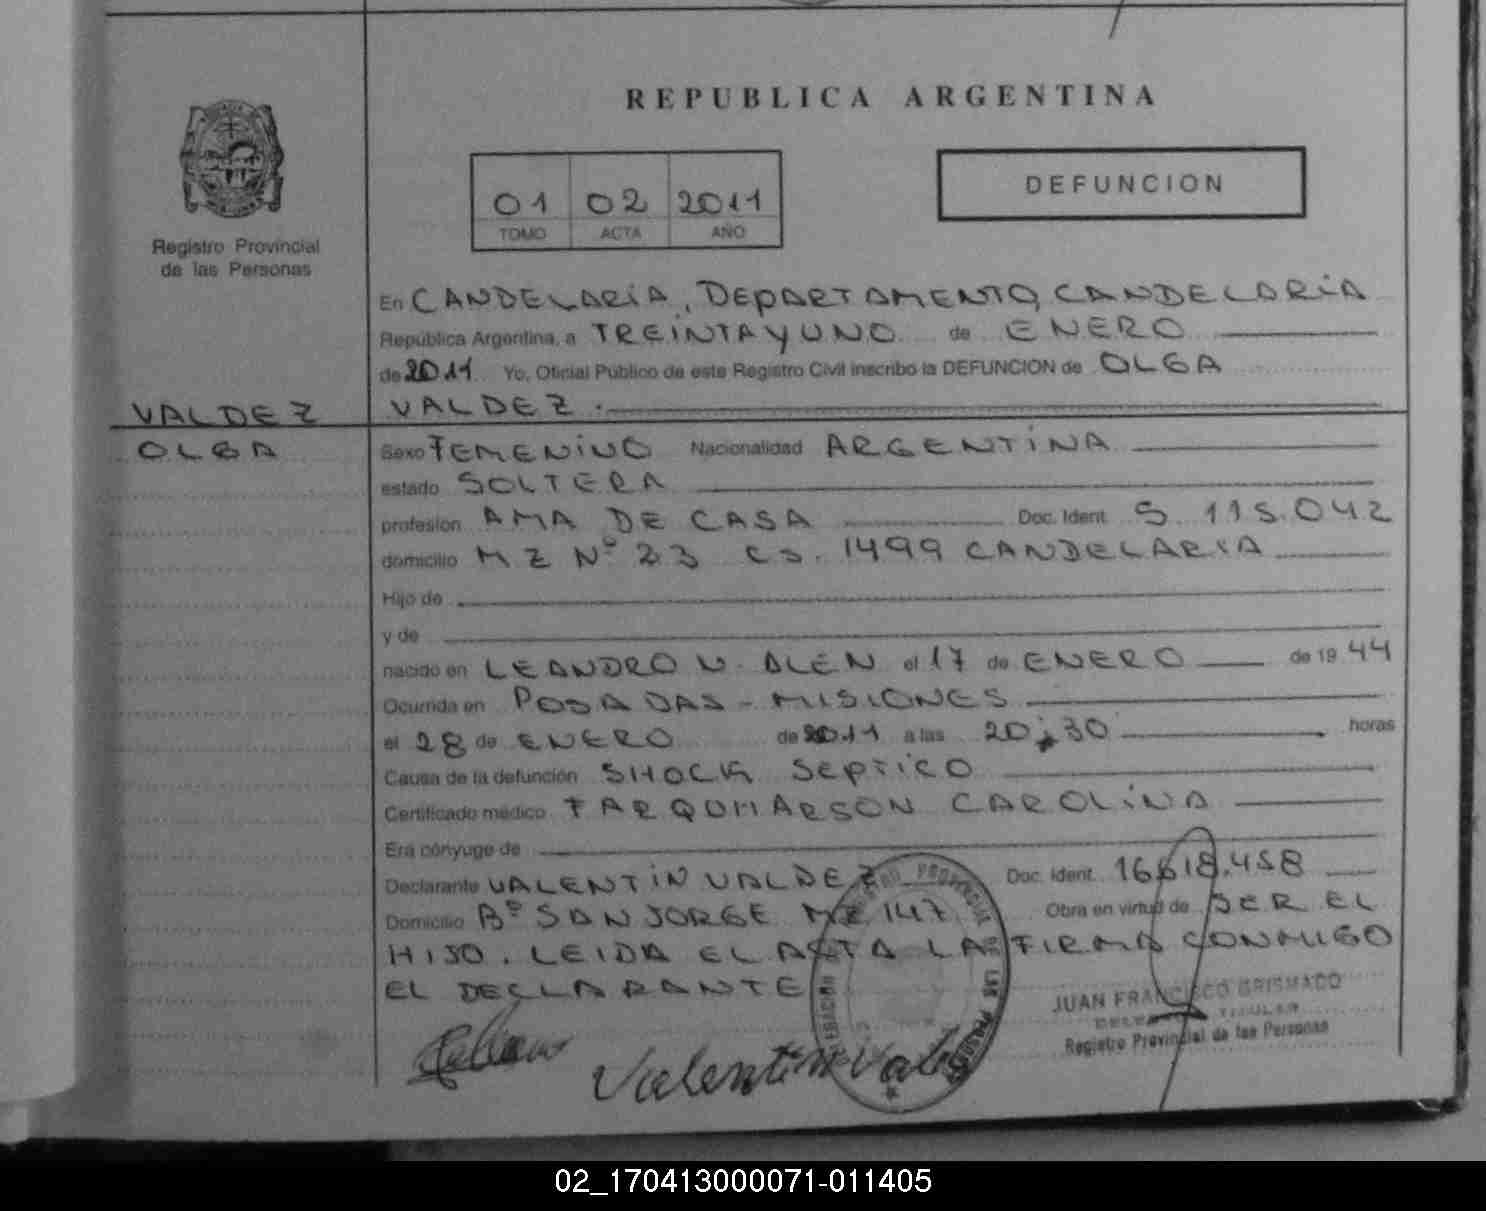 REPUBLICA ARGENTINA
Registro Provincial
de las Personas
01 02 2011
TOMO ACTA AÑO
DEFUNCION
En CANDELARIA, DEPARTAMENTO CANDELARIA
República Argentina, a TREINTA Y UNO de ENERO
de 2011 Yo, Oficial Público de este Registro Civil inscribo la DEFUNCION de OLGA
VALDEZ.
VALDEZ
OLGA
Sexo FEMENINO Nacionalidad ARGENTINA
estado SOLTERA
profesión AMA DE CASA Doc. Ident. 5.115.042
domicilio MZ Nº 23 CS. 1499 CANDELARIA
Hijo de
y de
nacido en LEANDRO N. ALEN el 17 de ENERO de 19 44
Ocurrida en POSADAS - MISIONES
el 28 de ENERO de 2011 a las 20:30 horas
Causa de la defunción SHOCK SEPTICO
Certificado médico FARQUHARSON CAROLINA
Era cónyuge de
Declarante VALENTIN VALDEZ Doc. Ident. 16.618.458
Domicilio Bº SAN JORGE MZ 147 Obra en virtud de SER EL
HIJO. LEIDA EL ACTA LA FIRMA CONMIGO
EL DECLARANTE
JUAN FRANCISCO GRISMADO
TITULAR
Registro Provincial de las Personas
PROVINCIAL DE LAS PERSONAS
Valentin
02_170413000071-011405